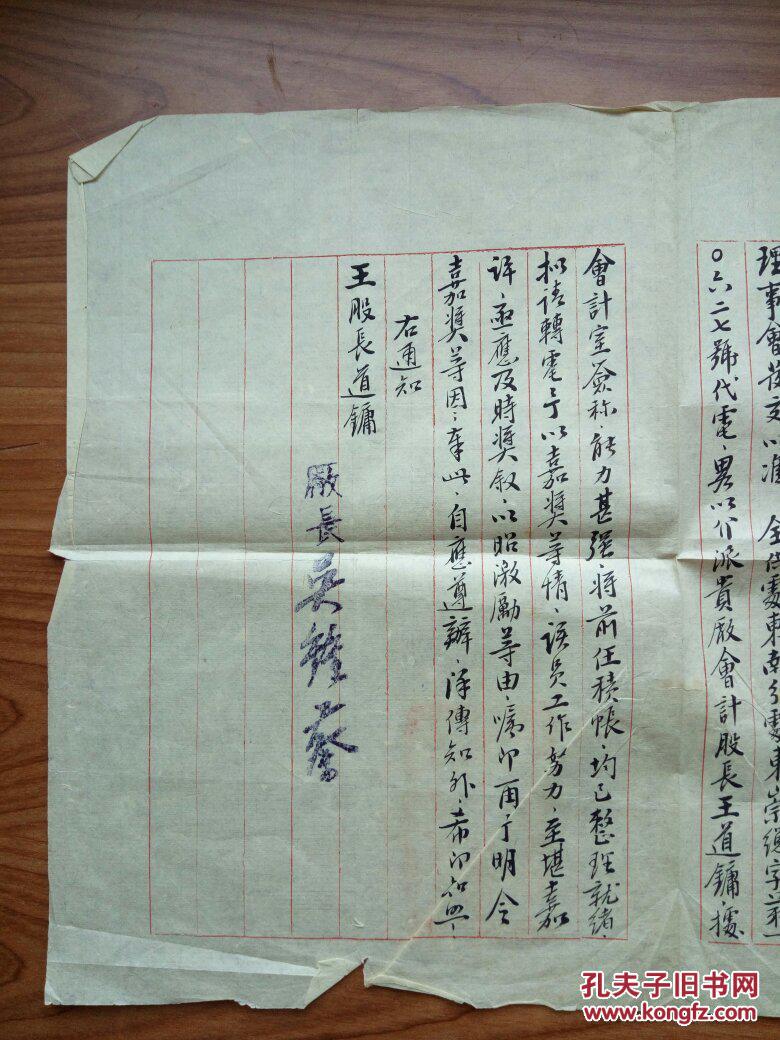 理事會發文以准 全
〇六二七號代電、畧以介派貴厰會計股長王道鏞、據
會計室簽称、能力甚强、將前任積帳、均已整理就緒、
拟請轉電予以嘉奬等情、該員工作努力、至堪嘉
許、亟應及時奬叙、以昭激勵等由、囑即用予明令
嘉奬等因、奉此、自應遵辦、除傳知外、希即知照、
右通知
王股長道鏞
厰長吴
孔夫子旧书网
www.kongfz.com